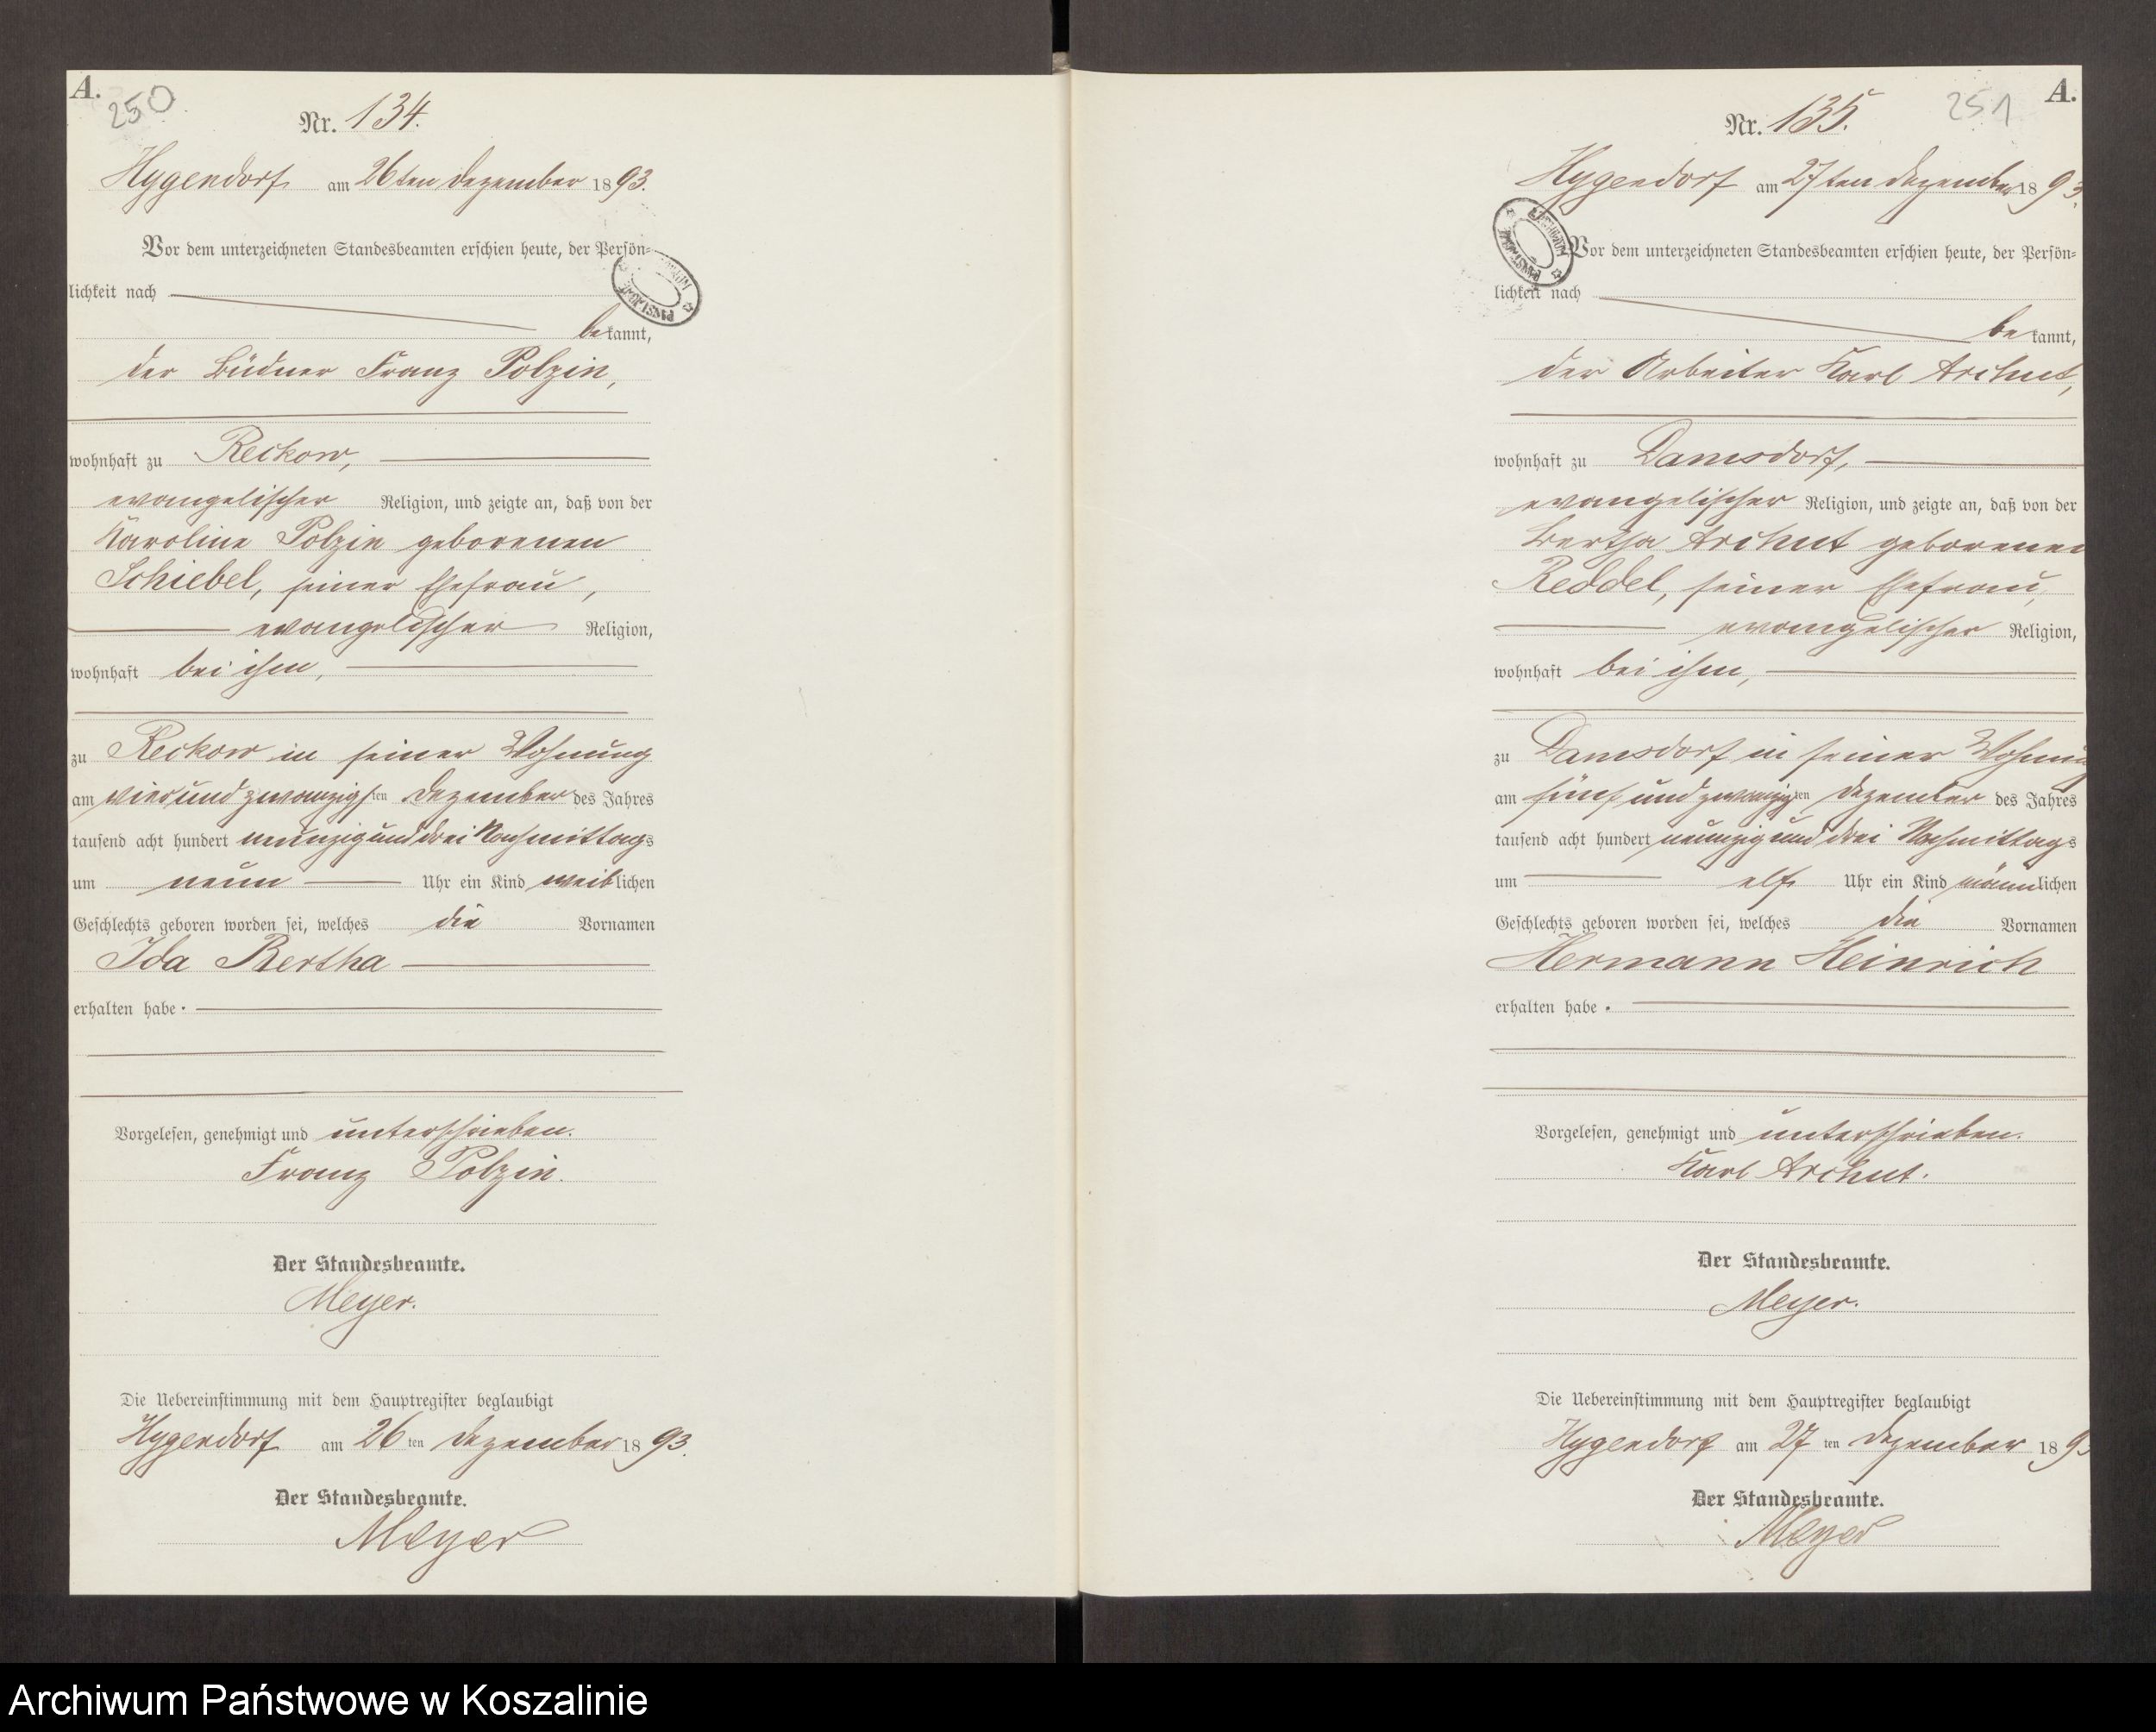 A.
250
Nr. 134.
Hygendorf am 26ten Dezember 1893.
Vor dem unterzeichneten Standesbeamten erschien heute, der Persön-
lichkeit nach
bekannt,
der Büdner Franz Polzin,
wohnhaft zu Reckow,
evangelischer Religion, und zeigte an, daß von der
Karoline Polzin geborenen
Schiebel, seiner Ehefrau,
evangelischer Religion,
wohnhaft bei ihm,
zu Reckow in seiner Wohnung
am vierundzwanzigsten Dezember des Jahres
tausend acht hundert neunzig und drei Nachmittags
um neun Uhr ein Kind weiblichen
Geschlechts geboren worden sei, welches die Vornamen
Ida Bertha
erhalten habe.
Vorgelesen, genehmigt und unterschrieben.
Franz Polzin.
Der Standesbeamte.
Meyer.
Die Uebereinstimmung mit dem Hauptregister beglaubigt
Hygendorf am 26ten Dezember 1893.
Der Standesbeamte.
Meyer
A.
251
Nr. 135.
Hygendorf am 27ten Dezember 1893.
Vor dem unterzeichneten Standesbeamten erschien heute, der Persön-
lichkeit nach
bekannt,
der Arbeiter Karl Archut,
wohnhaft zu Damsdorf,
evangelischer Religion, und zeigte an, daß von der
Bertha Archut geborenen
Reddel, seiner Ehefrau,
evangelischer Religion,
wohnhaft bei ihm,
zu Damsdorf in seiner Wohnung
am fünfundzwanzigsten Dezember des Jahres
tausend acht hundert neunzig und drei Nachmittags
um elf Uhr ein Kind männlichen
Geschlechts geboren worden sei, welches die Vornamen
Hermann Heinrich
erhalten habe.
Vorgelesen, genehmigt und unterschrieben.
Karl Archut.
Der Standesbeamte.
Meyer.
Die Uebereinstimmung mit dem Hauptregister beglaubigt
Hygendorf am 27ten Dezember 189
Der Standesbeamte.
Meyer
Archiwum Państwowe w Koszalinie